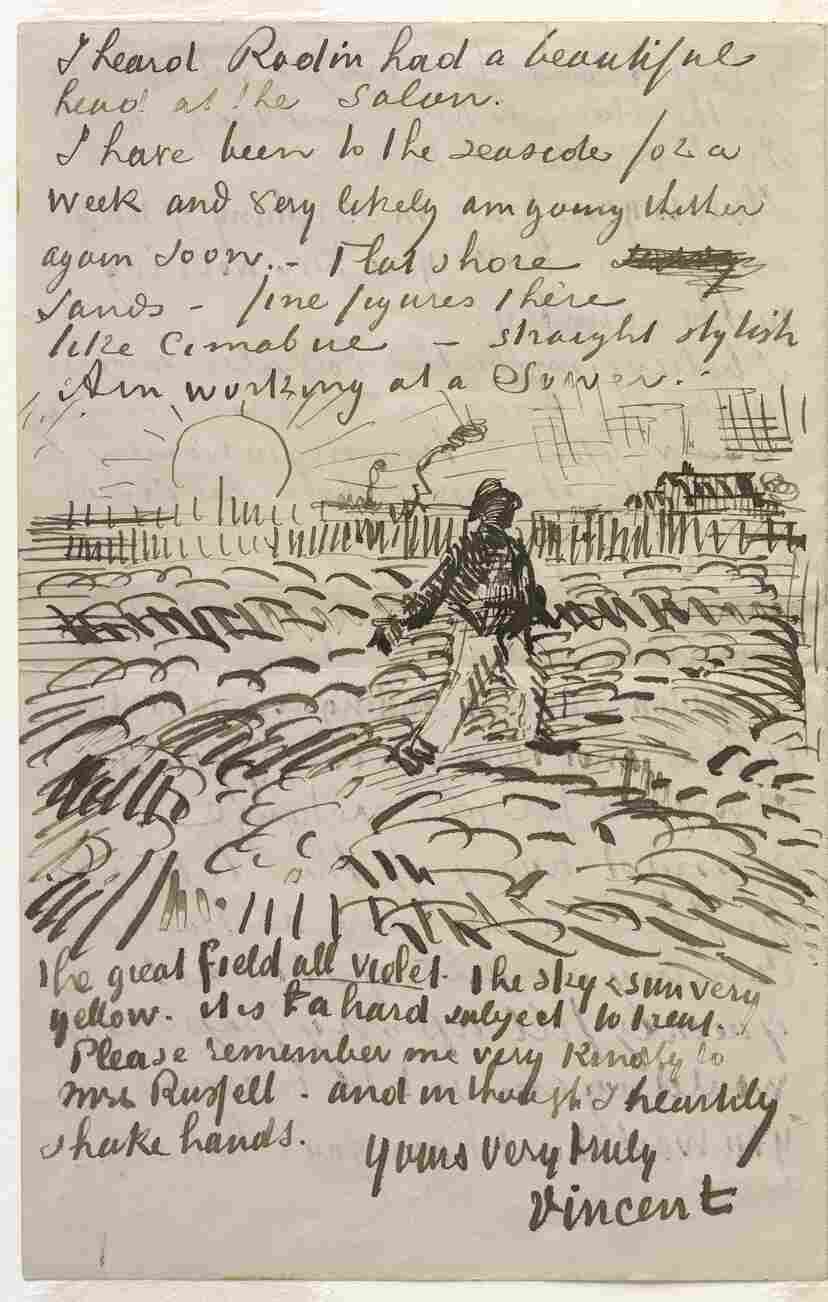 I heard Rodin had a beautiful
head at the Salon.
I have been to the seaside for a
week and very likely am going thither
again soon. - Flat shore
sands - fine figures there
like Cimabue - straight stylish
Am working at a Sower.
the great field all violet. the sky & sun very
yellow. it is a hard subject to treat.
Please remember me very kindly to
mrs Russell - and in thought I heartily
shake hands.
yours very truly
Vincent